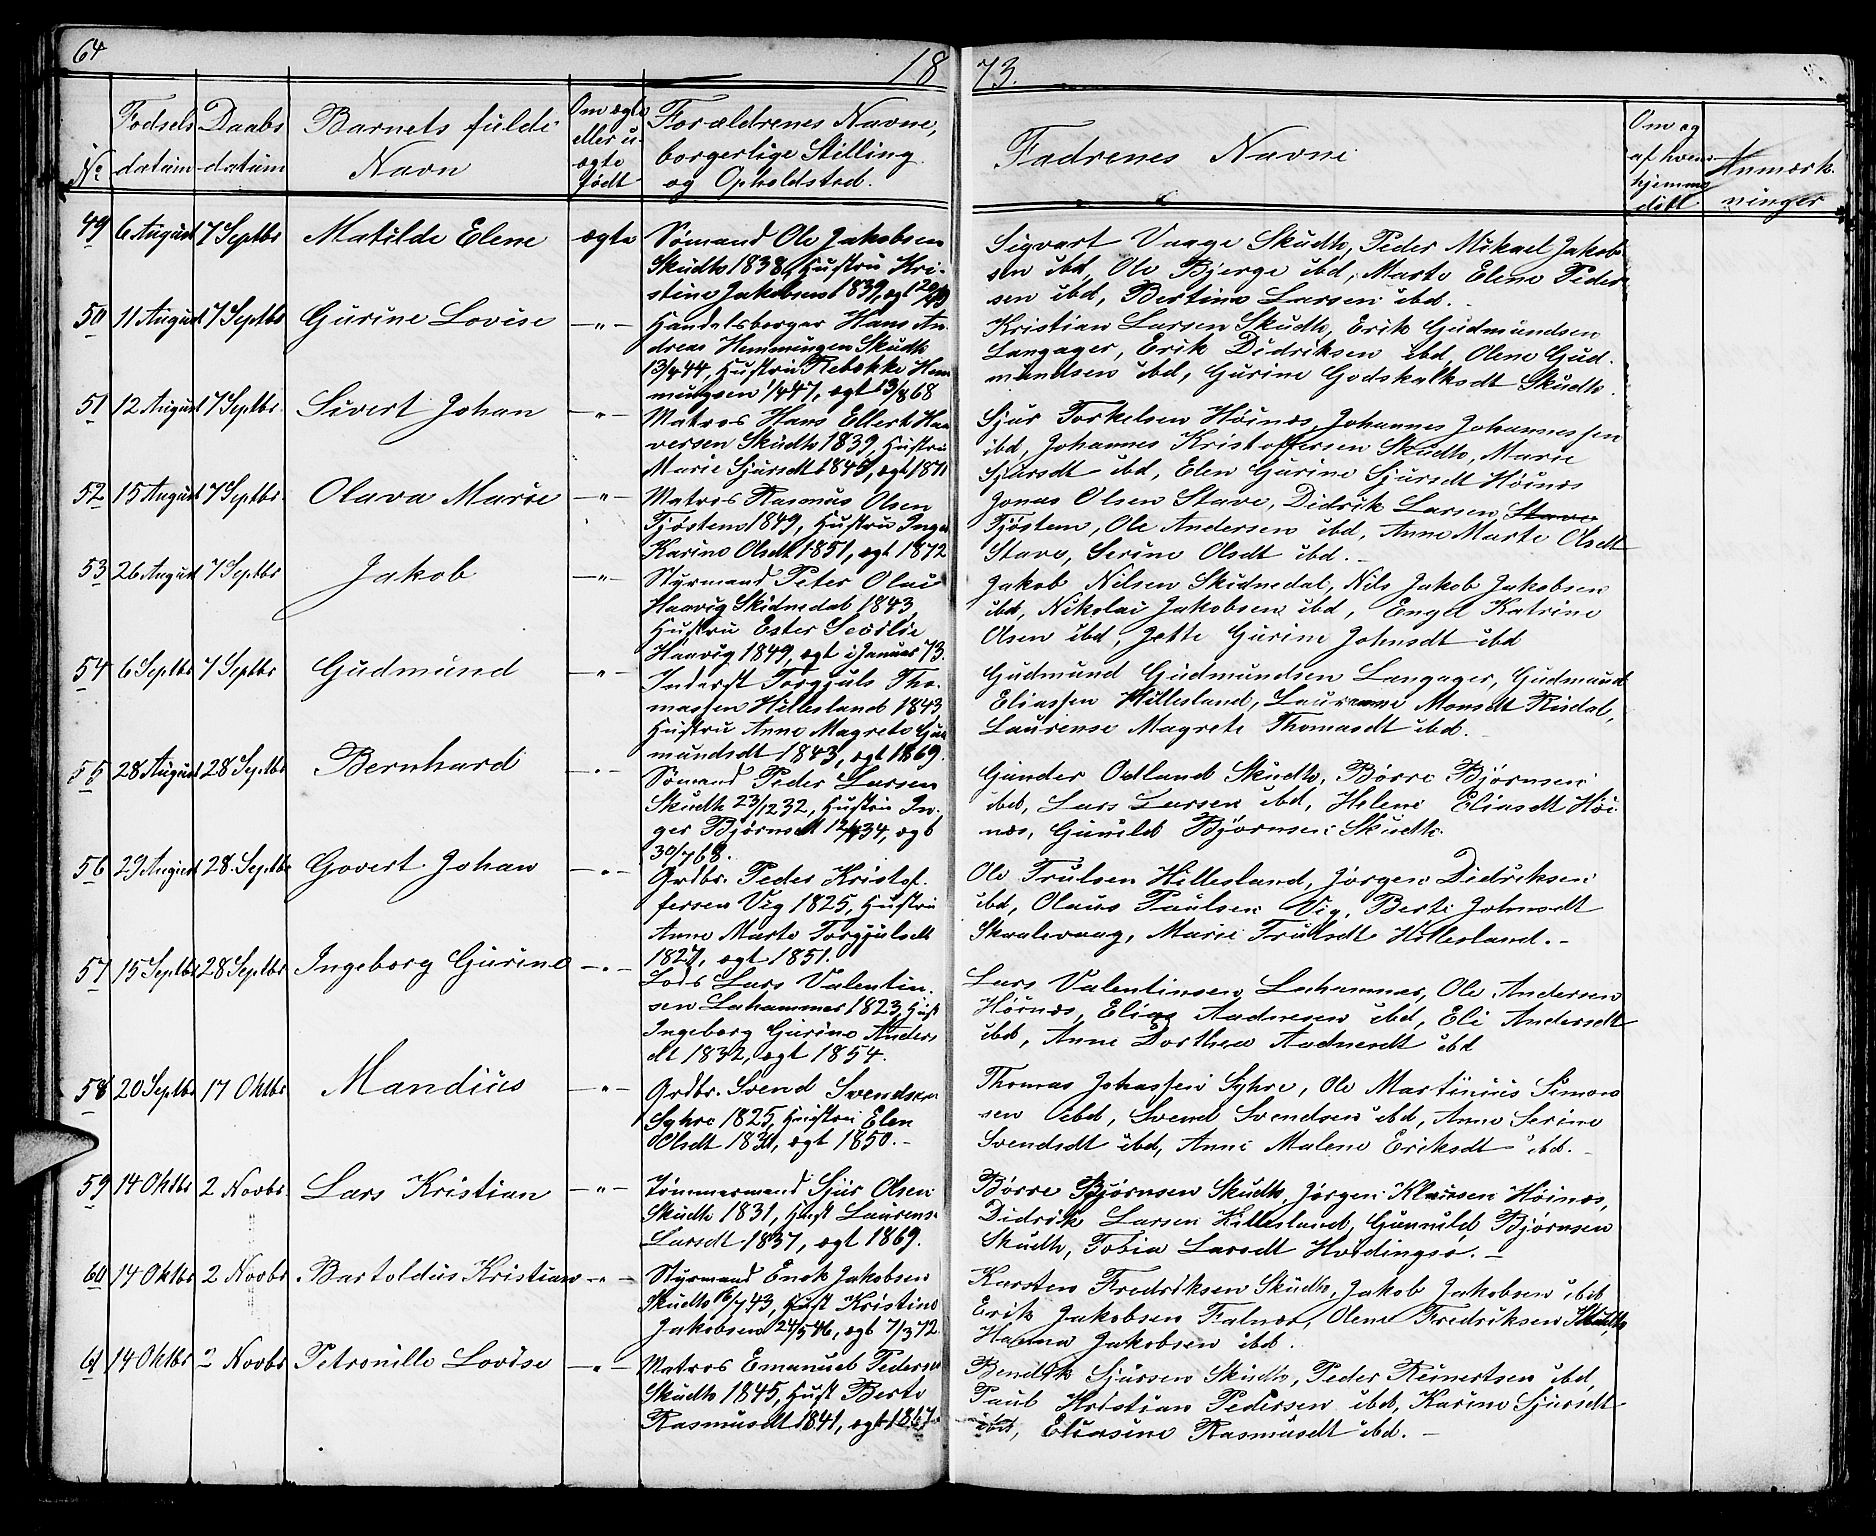 64
18 73.
No
Fødsels
datum
Daabs
datum
Barnets fulde
Navn
Om ægte
eller u-
ægte
født
Forældrenes Navne,
borgerlige Stilling
og Opholdsted.
Fadrenes Navne
Om og
af hvem
hjemme
døbt
Anmærk-
ninger
49 6 August 7 Septbr Matilde Elene ægte
Sømand Ole Jakobsen
Skudh 1838, Hustru Kri-
stine Jakobsen 1839, egt
Sigvart Vaage Skudh, Peder Mikael Jakob-
sen ibd, Ole Bjerge ibd, Marte Elene Peder-
sen ibd, Bertine Larsen ibd.
50 11 August 7 Septbr Gurine Lovise -"-
Handelsborger Hans An-
dreas Hemmingsen Skudh
13/4 44, Hustru Rebekke Hem
mingsen 1/4 47, egt 13/4 68
Kristian Larsen Skudh, Erik Gudmundsen
Langager, Erik Didriksen ibd, Olene Gud-
mundsen ibd, Gurine Godskalksdt Skudh.
51 12 August 7 Septbr. Sivert Johan -"-
Matros Hans Ellert Haa
versen Skudh 1839, Hustru
Marie Sjursdt 1845, egt 1871
Sjur Torkelsen Høinæs, Johannes Johannessen
ibd, Johannes Kristoffersen Skudh, Marie
Sjursdt ibd, Elen Gurine Sjursdt Høinæs
52 15 August 7 Septbr. Olava Marie -"-
Matros Rasmus Olsen
Tjøstem 1849, Hustru Inger
Karine Olsdt 1851, egt 1872
Jonas Olsen Stave, Didrik Larsen Stave
Tjøstem, Ole Andersen ibd, Anne Marte Olsdt
Stave, Serine Olsdt ibd.-
53 26 August 7 Septbr Jakob -"-
Styrmand Peter Olai
Haavig Skidnedal 1843,
Hustru Ester Secilie
Haavig 1849, egt i Januar 73.
Jakob Nilsen Skidnedal, Nils Jakob Jakobsen
ibd, Nikolai Jakobsen ibd, Engel Katrine
Olsen ibd, Jette Gurine Johnsdt ibd
54 6 Septbr 7 Septbr Gudmund -"-
Inderst Torgjuls Tho-
massen Hillesland 1843
Hustru Anne Magrete Gud
mundsdt 1843, egt 1869.
Gudmund Gudmundsen Langager, Gudmund
Eliassen Hillesland, Laurense Monsdt Risdal,
Laurense Magrete Thomasdt ibd.
55 28 August 28 Septbr Bernhard -"-
Sømand Peder Larsen
Skudh 23/12 32, Hustru In-
ger Bjørnsdt 12/4 34, egt
30/7 68.
Gunder Østland Skudh, Børre Bjørnsen
ibd, Lars Larsen ibd, Helene Eliasdt Høi-
næs, Gunild Bjørnsen Skudh.
56 29 August 28 Septbr Govert Johan -"-
Grdbr. Peder Kristof-
fersen Vig 1825, Hustru
Anne Marte Torgjulsdt
1827, egt 1851.
Ole Trulsen Hillesland, Jørgen Didriksen
ibd, Olaus Paulsen Vig, Berte Johnsdt
Skaalevaag, Marie Trulsdt Hillesland.-
57 15 Septbr 28 Septbr Ingeborg Gurine -"-
Lods Lars Valentin-
sen Lahammer 1823, Hust
Ingeborg Gurine Anders
dt 1832, egt 1854.
Lars Valentinsen Lahammer, Ole Andersen
Hørnæs, Elias Aadnesen ibd, Eli Andersdt
ibd, Anne Dorthea Aadnesdt ibd
58 20 Septbr 17 Oktbr Mandius -"-
Grdbr. Svend Svendsen
Syhre 1825, Hustru Elen
Olsdt 1831, egt 1850.-
Thomas Johassen Syhre, Ole Martinius Simon
sen ibd, Svend Svendsen ibd, Anne Serine
Svendsdt ibd, Anne Malene Eriksdt ibd.
59 14 Oktbr 2 Novbr Lars Kristian -"-
Tømmermand Sjur Olsen
Skudh 1831, Hust Laurense
Larsdt 1837, egt 1869.
Børre Bjørnsen Skudh, Jørgen Klausen Høinæs,
Didrik Larsen Hillesland, Gunnild Bjørnsen
Skudh, Tobia Larsdt Hvidingsø.-
60 14 Oktbr 2 Novbr Bartoldus Kristian -"-
Styrmand Enok Jakobsen
Skudh 16/7 43, Hust Kristine
Jakobsen 24/5 46, egt 7/3 72
Karsten Fredriksen Skudh, Jakob Jakobsen ibd
Erik Jakobsen Falnæs, Olene Fredriksen Skudh
Hanna Jakobsen ibd.
61 14 Oktbr 2 Novbr Petronille Lovise -"-
Matros Emanuel Pedersen
Skudh 1845, Hust Berte
Rasmusdt 1841, egt 1867.
Bendik Sjursen Skudh, Peder Reinertsen ibd,
Paul Kristian Pedersen ibd, Karine Sjursdt
ibd, Eliasine Rasmusdt ibd.-